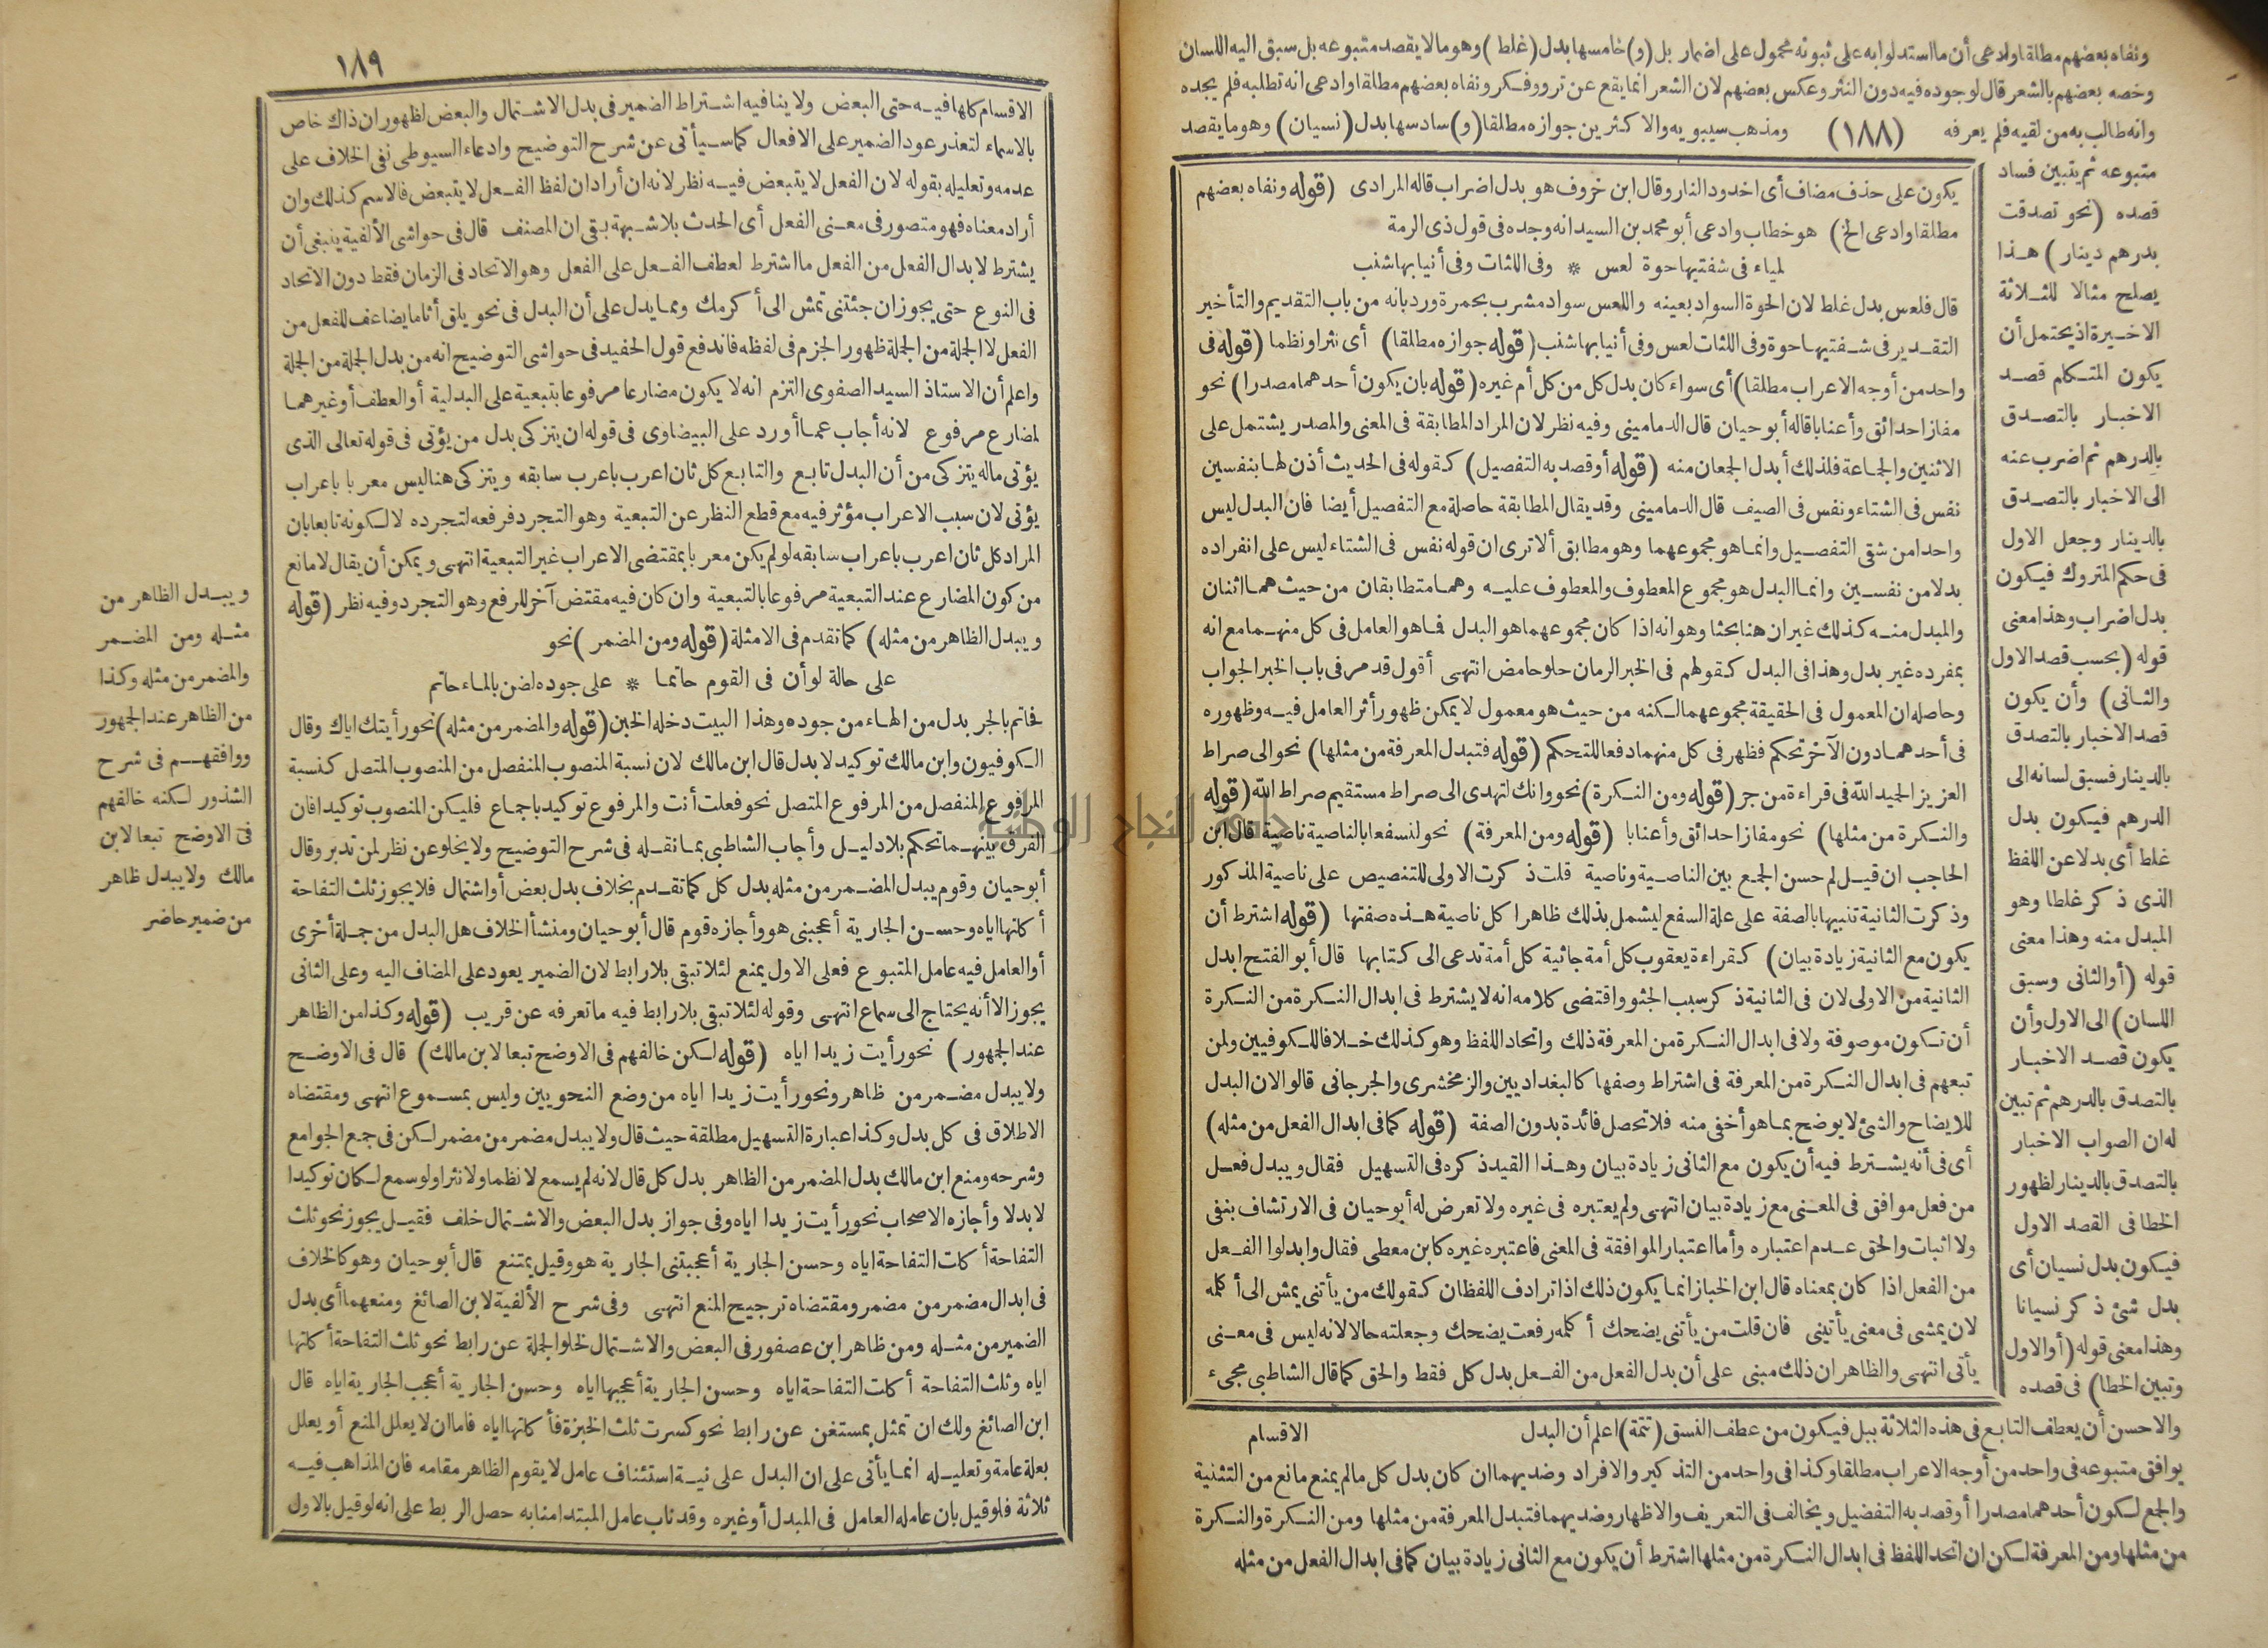 ونفاه بعضهم مطلقا وادعى أن ما استدلوا به على ثبوته محمول على اضمار بل (و) خامسها بدل (غلط) وهو ما لا يقصد متبوعه بل سبق اليه اللسان
وخصه بعضهم بالشعر قال لوجوده فيه دون النثر وعكس بعضهم لان الشعر انما يقع عن ترو وفكر ونفاه بعضهم مطلقا وادعى انه تطلبه فلم يجده
وانه طالب به من لقيه فلم يعرفه (١٨٨) ومذهب سيبويه والاكثرين جوازه مطلقا (و) سادسها بدل (نسيان) وهو ما يقصد
متبوعه ثم يتبين فساد
قصده (نحو تصدقت
بدرهم دينار) هذا
يصلح مثالا للثلاثة
الاخيرة اذ يحتمل أن
يكون المتكلم قصد
الاخبار بالتصدق
بالدرهم ثم اضرب عنه
الى الاخبار بالتصدق
بالدينار وجعل الاول
فى حكم المتروك فيكون
بدل اضراب وهذا معنى
قوله (بحسب قصد الاول
والثانى) وأن يكون
قصد الاخبار بالتصدق
بالدينار فسبق لسانه الى
الدرهم فيكون بدل
غلط أى بدلا عن اللفظ
الذى ذكر غلطا وهو
المبدل منه وهذا معنى
قوله (أو الثانى وسبق
اللسان) الى الاول وأن
يكون قصد الاخبار
بالتصدق بالدرهم ثم تبين
له ان الصواب الاخبار
بالتصدق بالدينار لظهور
الخطا فى القصد الاول
فيكون بدل نسيان أى
بدل شئ ذكر نسيانا
وهذا معنى قوله (أو الاول
وتبين الخطا) فى قصده
يكون على حذف مضاف أى اخدود النار وقال ابن خروف هو بدل اضراب قاله المرادى (قوله ونفاه بعضهم
مطلقا وادعى الخ) هو خطاب وادعى أبو محمد بن السيد انه وجده فى قول ذى الرمة
لمياء فى شفتيها حوة لعس * وفى اللثات وفى أنيابها شنب
قال فلعس بدل غلط لان الحوة السواد بعينه واللعس سواد مشرب بحمرة ورد بانه من باب التقديم والتأخير
التقدير فى شفتيها حوة وفى اللثات لعس وفى أنيابها شنب (قوله جوازه مطلقا) أى نثرا ونظما (قوله فى
واحد من أوجه الاعراب مطلقا) أى سواء كان بدل كل من كل أم غيره (قوله بان يكون أحدهما مصدرا) نحو
مفازا حدائق وأعنابا قاله أبو حيان قال الدمامينى وفيه نظر لان المراد المطابقة فى المعنى والمصدر يشتمل على
الاثنين والجماعة فلذلك أبدل الجمعان منه (قوله أو قصد به التفصيل) كقوله فى الحديث أذن لها بنفسين
نفس فى الشتاء ونفس فى الصيف قال الدمامينى وقد يقال المطابقة حاصلة مع التفصيل أيضا فان البدل ليس
واحدا من شقى التفصيل وانما هو مجموعهما وهو مطابق ألا ترى ان قوله نفس فى الشتاء ليس على انفراده
بدلا من نفسين وانما البدل هو مجموع المعطوف والمعطوف عليه وهما متطابقان من حيث هما اثنان
والمبدل منه كذلك غير ان هنا بحثا وهو انه اذا كان مجموعهما هو البدل فما هو العامل فى كل منهما مع انه
بمفرده غير بدل وهذا فى البدل كقولهم فى الخبر الرمان حلو حامض انتهى أقول قد مر فى باب الخبر الجواب
وحاصله ان المعمول فى الحقيقة مجموعهما لكنه من حيث هو معمول لا يمكن ظهور أثر العامل فيه وظهوره
فى أحدهما دون الآخر تحكم فظهر فى كل منهما دفعا للتحكم (قوله فتبدل المعرفة من مثلها) نحو الى صراط
العزيز الحميد الله فى قراءة من جر (قوله ومن النكرة) نحو وانك لتهدى الى صراط مستقيم صراط الله (قوله
والنكرة من مثلها) نحو مفازا حدائق وأعنابا (قوله ومن المعرفة) نحو لنسفعا بالناصية ناصية قال ابن
الحاجب ان قيل لم حسن الجمع بين الناصية وناصية قلت ذكرت الاولى للتنصيص على ناصية المذكور
وذكرت الثانية تنبيها بالصفة على علة السفع ليشمل بذلك ظاهرا كل ناصية هذه صفتها (قوله اشترط أن
يكون مع الثانية زيادة بيان) كقراءة يعقوب كل أمة جاثية كل أمة تدعى الى كتابها قال أبو الفتح ابدل
الثانية من الاولى لان فى الثانية ذكر سبب الجثو واقتضى كلامه انه لا يشترط فى ابدال النكرة من النكرة
أن تكون موصوفة ولا فى ابدال النكرة من المعرفة ذلك واتحاد اللفظ وهو كذلك خلافا للكوفيين ولمن
تبعهم فى ابدال النكرة من المعرفة فى اشتراط وصفها كالبغداديين والزمخشرى والجرجانى قالوا لان البدل
للايضاح والشئ لا يوضح بما هو أخفى منه فلا تحصل فائدة بدون الصفة (قوله كما فى ابدال الفعل من مثله)
أى فى أنه يشترط فيه أن يكون مع الثانى زيادة بيان وهذا القيد ذكره فى التسهيل فقال ويبدل فعل
من فعل موافق فى المعنى مع زيادة بيان انتهى ولم يعتبره فى غيره ولا تعرض له أبو حيان فى الارتشاف بنفى
ولا اثبات والحق عدم اعتباره وأما اعتبار الموافقة فى المعنى فاعتبره غيره كابن معطى فقال وابدلوا الفعل
من الفعل اذا كان بمعناه قال ابن الخباز انما يكون ذلك اذا ترادف اللفظان كقولك من يأتنى يمش الى أكله
لان يمشى فى معنى يأتينى فان قلت من يأتنى يضحك أكله رفعت يضحك وجعلته حالا لانه ليس فى معنى
يأتى انتهى والظاهر ان ذلك مبنى على أن بدل الفعل من الفعل بدل كل فقط والحق كما قال الشاطبى مجىء
والاحسن أن يعطف التابع فى هذه الثلاثة ببل فيكون من عطف النسق (تتمة) اعلم أن البدل الاقسام
يوافق متبوعه فى واحد من أوجه الاعراب مطلقا وكذا فى واحد من التذكير والافراد وضديهما ان كان بدل كل ما لم يمنع مانع من التثنية
والجمع لكون أحدهما مصدرا أو قصد به التفضيل ويخالف فى التعريف والاظهار وضديهما فتبدل المعرفة من مثلها ومن النكرة والنكرة
من مثلها ومن المعرفة لكن ان اتحد اللفظ فى ابدال النكرة من مثلها اشترط أن يكون مع الثانى زيادة بيان كما فى ابدال الفعل من مثله
١٨٩
الاقسام كلها فيه حتى البعض ولا ينافيه اشتراط الضمير فى بدل الاشتمال والبعض لظهور ان ذاك خاص
بالاسماء لتعذر عود الضمير على الافعال كما سيأتى عن شرح التوضيح وادعاء السيوطى نفى الخلاف على
عدمه وتعليله بقوله لان الفعل لا يتبعض فيه نظر لانه ان أراد ان لفظ الفعل لا يتبعض فالاسم كذلك وان
أراد معناه فهو متصور فى معنى الفعل أى الحدث بلا شبهة بقى ان المصنف قال فى حواشى الألفية ينبغى أن
يشترط لابدال الفعل من الفعل ما اشترط لعطف الفعل على الفعل وهو الاتحاد فى الزمان فقط دون الاتحاد
فى النوع حتى يجوز ان جئتنى تمش الى أكرمك ومما يدل على أن البدل فى نحو يلق أثاما يضاعف للفعل من
الفعل لا الجملة من الجملة ظهور الجزم فى لفظه فاندفع قول الحفيد فى حواشى التوضيح انه من بدل الجملة من الجملة
واعلم أن الاستاذ السيد الصفوى التزم انه لا يكون مضارعا مرفوعا بتبعية على البدلية أو العطف أو غيرهما
لمضارع مرفوع لانه أجاب عما أورد على البيضاوى فى قوله ان يتزكى بدل من يؤتى فى قوله تعالى الذى
يؤتى ماله يتزكى من أن البدل تابع والتابع كل ثان اعرب باعرب سابقه ويتزكى هنا ليس معربا باعراب
يؤتى لان سبب الاعراب مؤثر فيه مع قطع النظر عن التبعية وهو التجرد فرفعه لتجرده لا لكونه تابعا بان
المراد كل ثان اعرب باعراب سابقه لو لم يكن معربا بمقتضى الاعراب غير التبعية انتهى ويمكن أن يقال لا مانع
من كون المضارع عند التبعية مرفوعا بالتبعية وان كان فيه مقتض آخر للرفع وهو التجرد وفيه نظر (قوله
ويبدل الظاهر من مثله) كما تقدم فى الامثلة (قوله ومن المضمر) نحو
على حالة لو أن فى القوم حاتما * على جوده لضن بالماء حاتم
فحاتم بالجر بدل من الهاء من جوده وهذا البيت دخله الخبن (قوله والمضمر من مثله) نحو رأيتك اياك وقال
الكوفيون وابن مالك توكيد لا بدل قال ابن مالك لان نسبة المنصوب المنفصل من المنصوب المتصل كنسبة
المرفوع المنفصل من المرفوع المتصل نحو فعلت أنت والمرفوع توكيد باجماع فليكن المنصوب توكيدا فان
الفرق بينهما تحكم بلا دليل وأجاب الشاطبى بما نقله فى شرح التوضيح ولا يخلو عن نظر لمن تدبر وقال
أبو حيان وقوم يبدل المضمر من مثله بدل كل كما تقدم بخلاف بدل بعض أو اشتمال فلا يجوز ثلث التفاحة
أكلتها اياه وحسن الجارية أعجبنى هو وأجازه قوم قال أبو حيان ومنشأ الخلاف هل البدل من جملة أخرى
أو العامل فيه عامل المتبوع فعلى الاول يمنع لئلا تبقى بلا رابط لان الضمير يعود على المضاف اليه وعلى الثانى
يجوز الا أنه يحتاج الى سماع انتهى وقوله لئلا تبقى بلا رابط فيه ما تعرفه عن قريب (قوله وكذا من الظاهر
عند الجمهور) نحو رأيت زيدا اياه (قوله لكن خالفهم فى الاوضح تبعا لابن مالك) قال فى الاوضح
ولا يبدل مضمر من ظاهر ونحو رأيت زيدا اياه من وضع النحويين وليس بمسموع انتهى ومقتضاه
الاطلاق فى كل بدل وكذا عبارة التسهيل مطلقة حيث قال ولا يبدل مضمر من مضمر لكن فى جمع الجوامع
وشرحه ومنع ابن مالك بدل المضمر من الظاهر بدل كل قال لانه لم يسمع لا نظما ولا نثرا ولو سمع لكان توكيدا
لا بدلا وأجازه الاصحاب نحو رأيت زيدا اياه وفى جواز بدل البعض والاشتمال خلف فقيل يجوز نحو ثلث
التفاحة أكلت التفاحة اياه وحسن الجارية أعجبتنى الجارية هو وقيل يمتنع قال أبو حيان وهو كالخلاف
فى ابدال مضمر من مضمر ومقتضاه ترجيح المنع انتهى وفى شرح الألفية لابن الصائغ ومنعهما أى بدل
الضمير من مثله ومن ظاهر ابن عصفور فى البعض والاشتمال لخلو الجملة عن رابط نحو ثلث التفاحة أكلتها
اياه وثلث التفاحة أكلت التفاحة اياه وحسن الجارية أعجبها اياه وحسن الجارية أعجب الجارية اياه قال
ابن الصائغ ولك ان تمثل بمستغن عن رابط نحو كسرت ثلث الخبزة فأكلتها اياه فاما ان لا يعلل المنع أو يعلل
بعلة عامة وتعليله انما يأتى على ان البدل على نية استئناف عامل لا يقوم الظاهر مقامه فان المذاهب فيه
ثلاثة فلو قيل بان عامله العامل فى المبدل أو غيره وقد ناب عامل المبتدا منابه حصل الربط على انه لو قيل بالاول
ويبدل الظاهر من
مثله ومن المضمر
والمضمر من مثله وكذا
من الظاهر عند الجمهور
ووافقهم فى شرح
الشذور لكنه خالفهم
فى الاوضح تبعا لابن
مالك ولا يبدل ظاهر
من ضمير حاضر
جامعة النجاح الوطنية